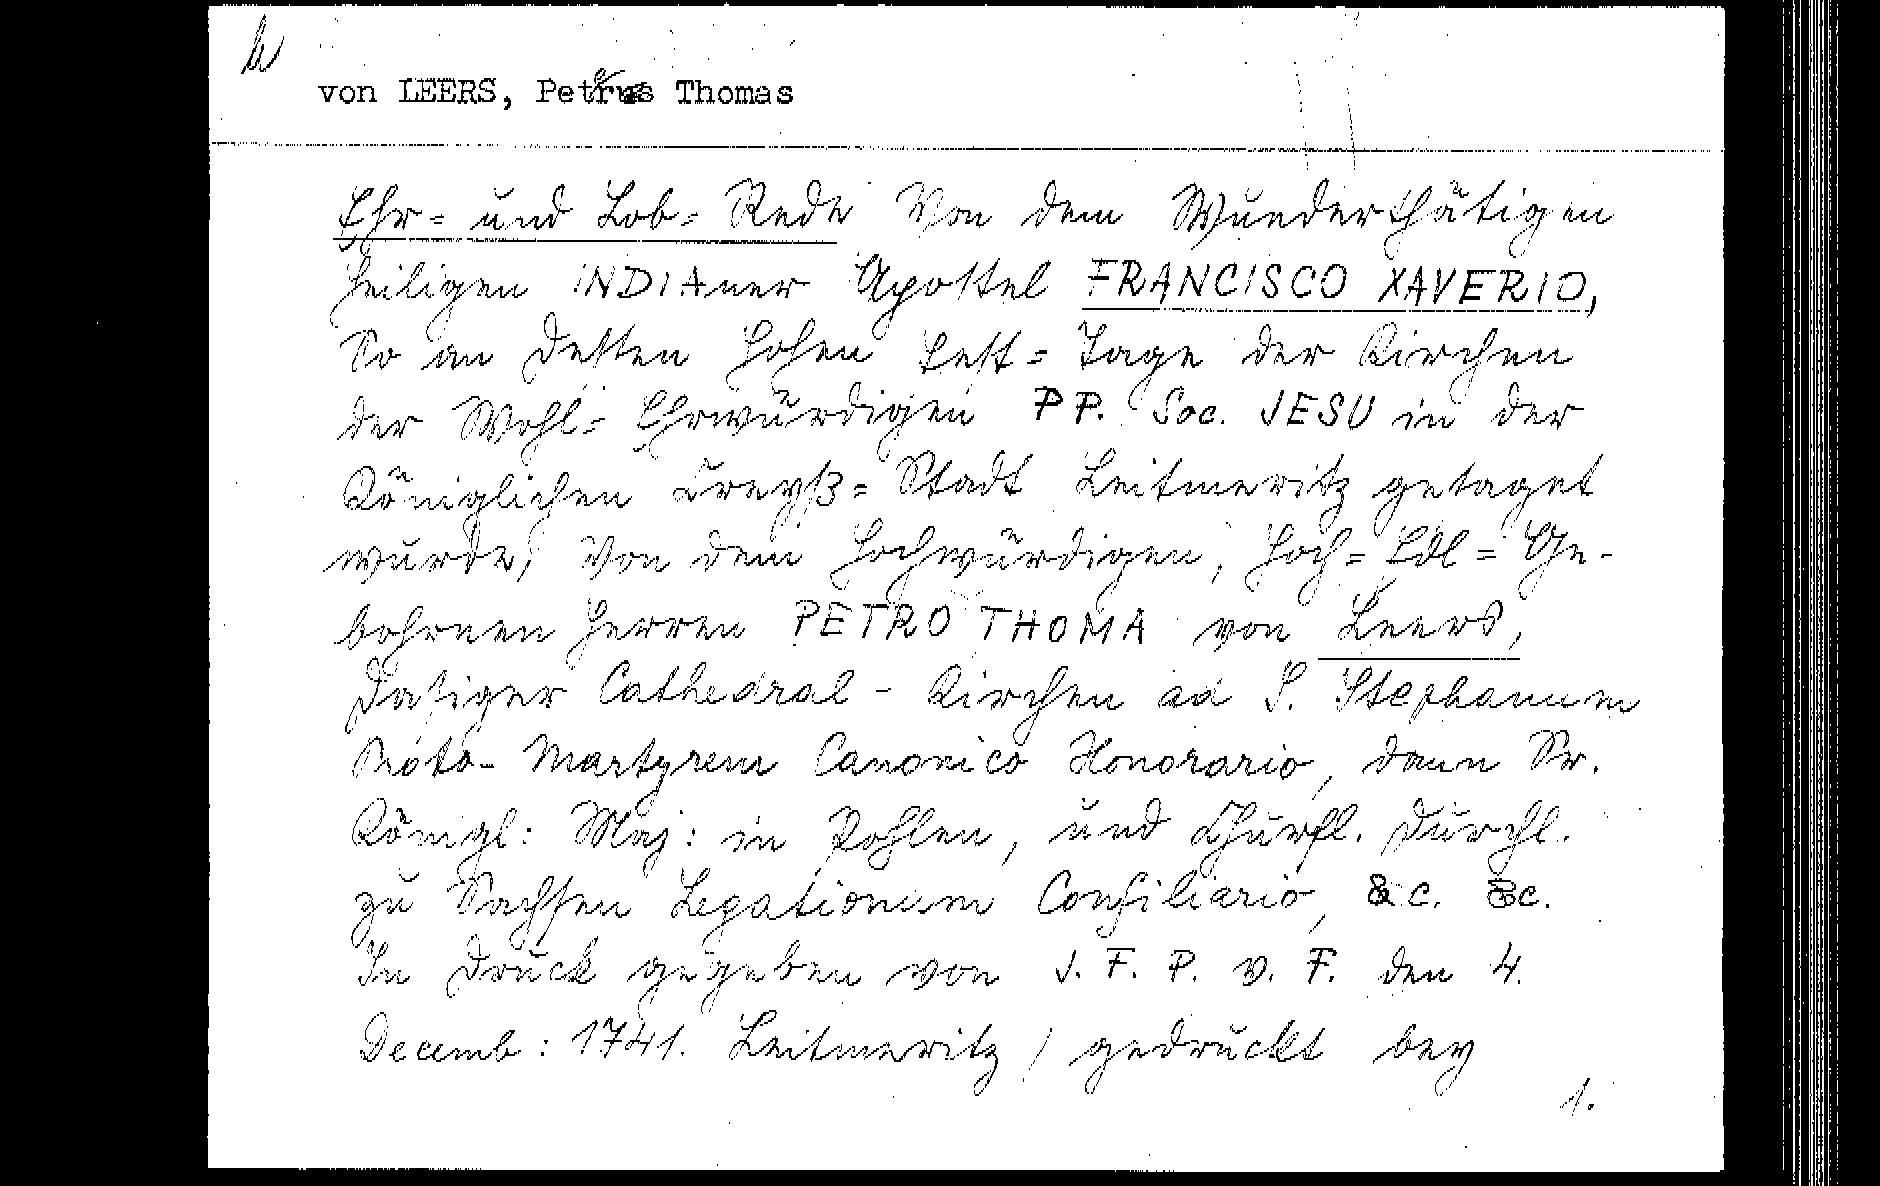 von LEERS, Petrus Thomas
Ehr= und Lob= Rede Von dem Wunderthätigen
heiligen INDIAner Apostel FRANCISCO XAVERIO,
So an dessen hohen Fest= Tage der Kirchen
der Wohl= Ehrwürdigen PP. Soc. JESU in der
Königlichen Creyß= Stadt Leitmeritz getaget
wurde, Von dem Hochwürdigen, Hoch= Edl= Ge-
bohrnen Herren PETRO THOMA von Leers,
Dasiger Cathedral - Kirchen ad S. Stephanum
Proto- Martyrem Canonico Honorario, dann Sr.
Königl: Maj: in Pohlen, und Churfl. Durchl.
zu Sachsen Legationum Consiliario, &c. &c.
In Druck gegeben von J. F. P. v. F. den 4.
Decemb: 1741. Leitmeritz / gedruckt bey
1.